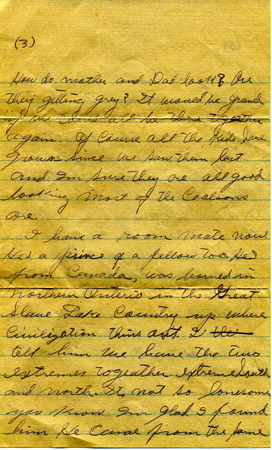 (3)
How do mother and Dad look? Are
they getting grey? It would be grand
if we could all be there together
again. Of Course all the kids have
grown since we saw them last
and Im sure they are all good
looking most of the Coalsons
are.
I have a room mate now
Hes a prince of a fellow too. Hes
from Canada, was borned in
northern Ontario in the Great
Slave Lake Country up where
Civilization thins out. I
tell him we have the two
extremes togeather extreme South
and north. Its not so lonesome
you know Im glad I found
him He Came from the same